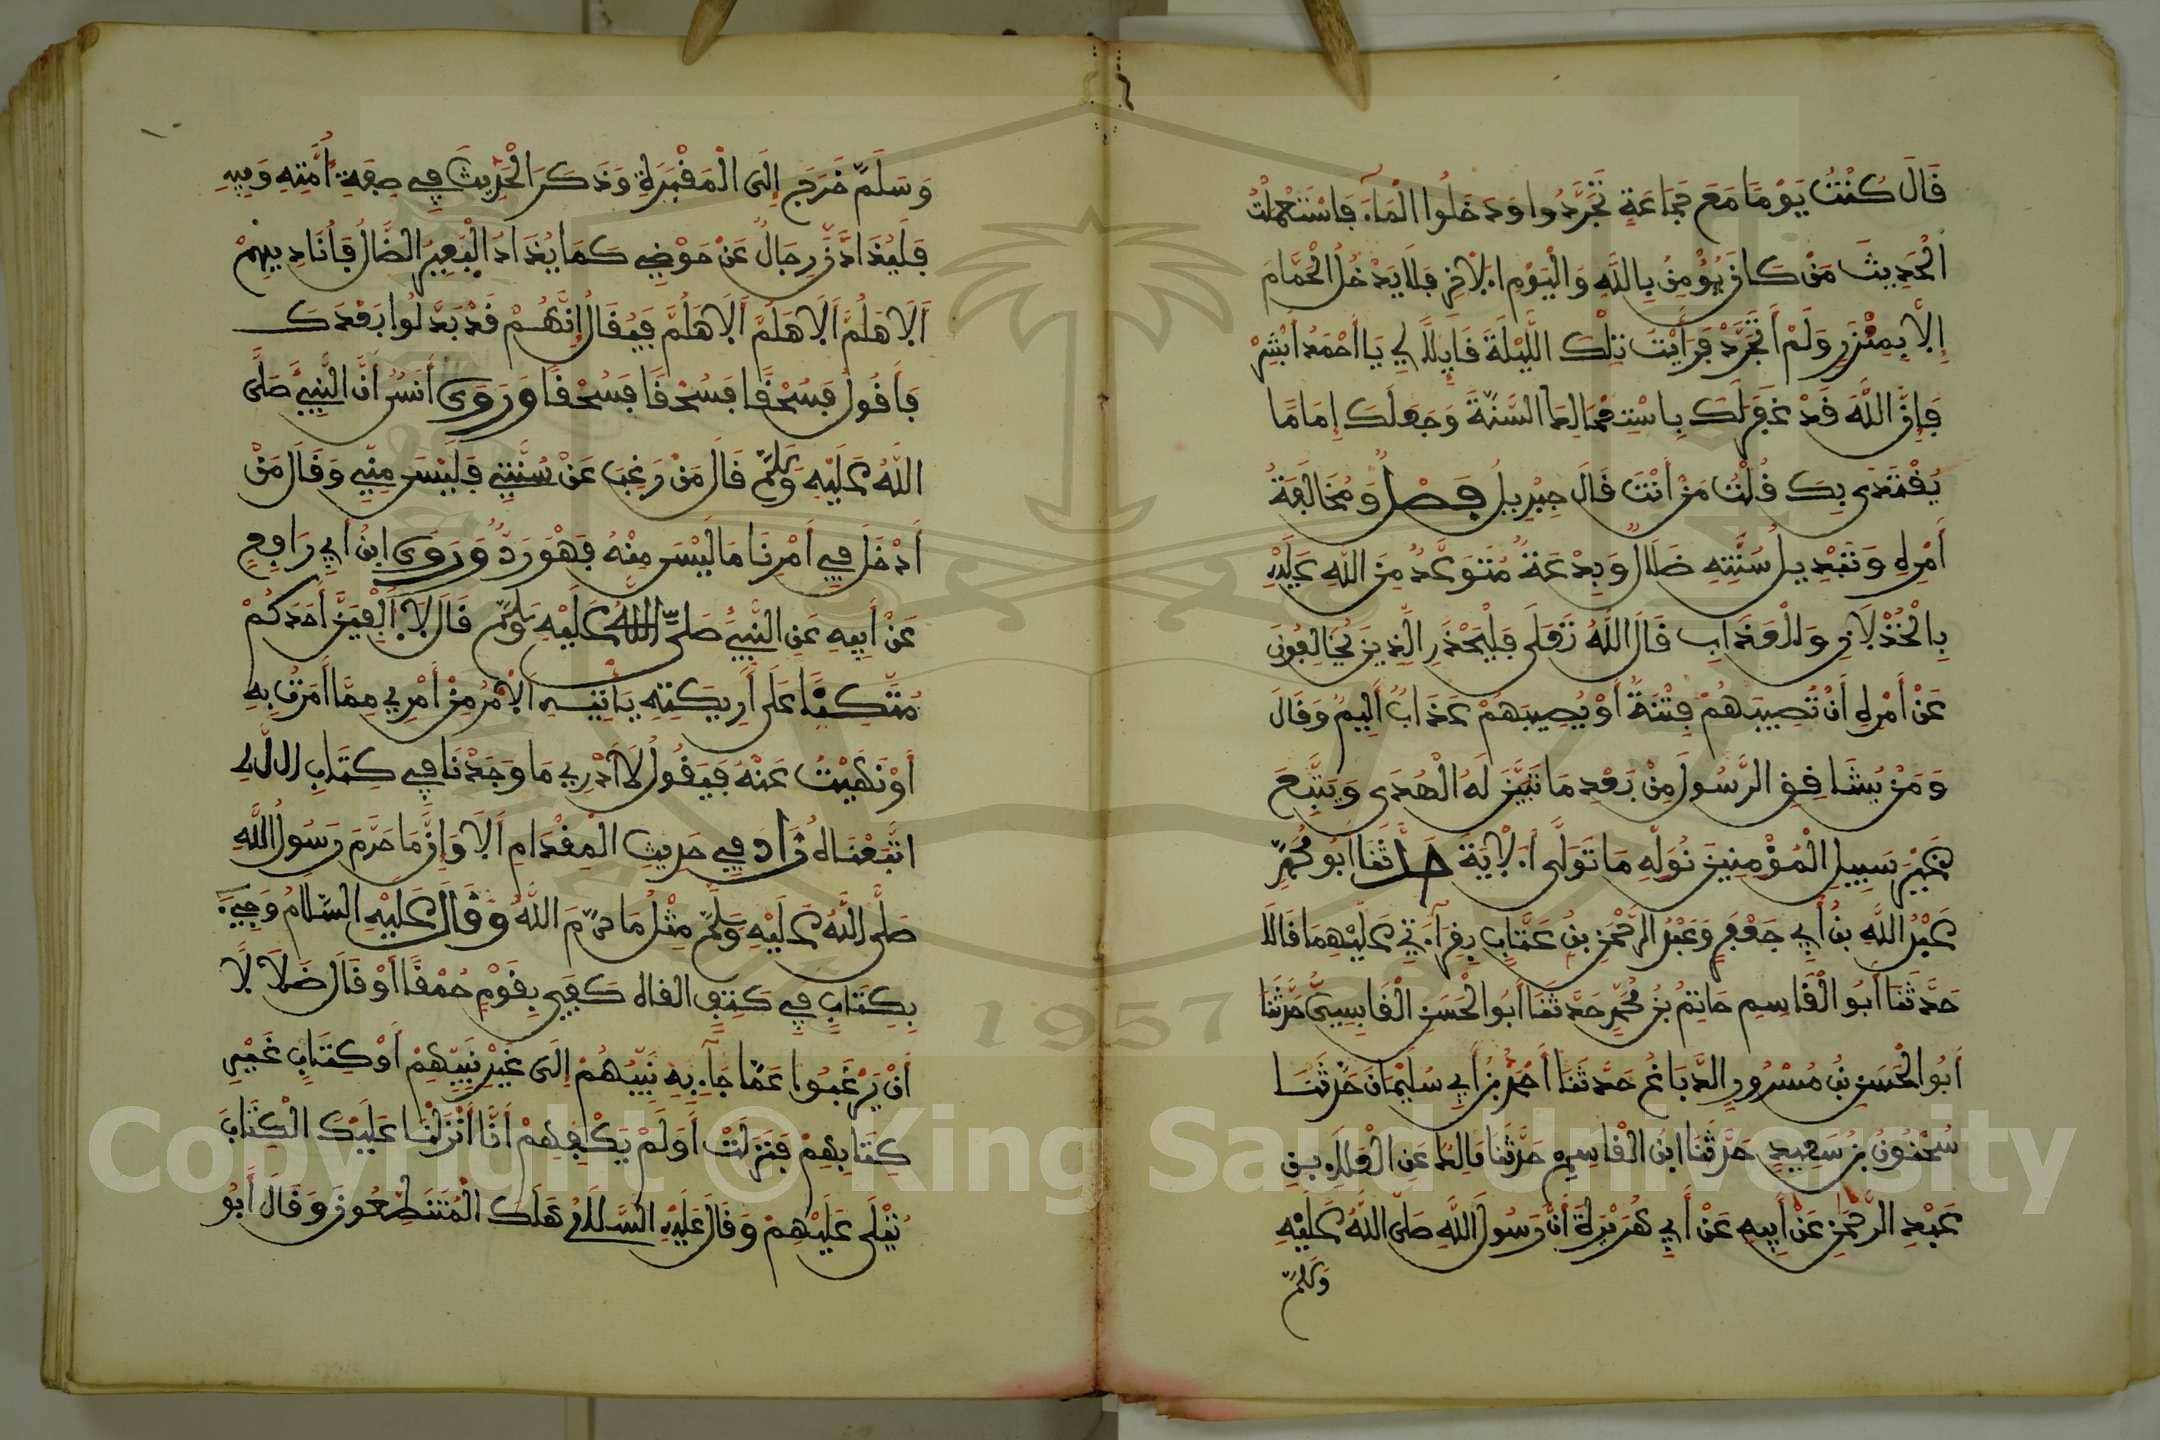 قَالَ كُنْتُ يَوْمًا مَعَ جَمَاعَةٍ تَجَرَّدُوا وَدَخَلُوا الْمَآءَ فَاسْتَعْمَلْتُ
الْحَدِيثَ مَنْ كَانَ يُؤْمِنُ بِاللَّهِ وَالْيَوْمِ الْأَخِرِ فَلَا يَدْخُلِ الْحَمَّامَ
إِلَّا بِمِئْزَرٍ وَلَمْ أَتَجَرَّدْ فَرَأَيْتُ تِلْكَ اللَّيْلَةَ قَايِلًا لِي يَا أَحْمَدُ أَبْشِرْ
فَإِنَّ اللَّهَ قَدْ غَفَرَ لَكَ بِاسْتِعْمَالِكَ السُّنَّةَ وَجَعَلَكَ إِمَامًا
يُقْتَدَى بِكَ قُلْتُ مَنْ أَنْتَ قَالَ جِبْرِيلُ فَصْلٌ وَمُخَالَفَةُ
أَمْرِهِ وَتَبْدِيلُ سُنَّتِهِ ضَلَالٌ وَبِدْعَةٌ مُتَوَعَّدٌ مِنَ اللَّهِ عَلَيْهِ
بِالْخُذْلَانِ وَالْعَذَابِ قَالَ اللَّهُ تَعَلَى فَلْيَحْذَرِ الَّذِينَ يُخَالِفُونَ
عَنْ أَمْرِهِ أَنْ تُصِيبَهُمْ فِتْنَةٌ أَوْ يُصِيبَهُمْ عَذَابٌ أَلِيمٌ وَقَالَ
وَمَنْ يُشَاقِقِ الرَّسُولَ مِنْ بَعْدِ مَا تَبَيَّنَ لَهُ الْهُدَى وَيَتَّبِعْ
غَيْرَ سَبِيلِ الْمُؤْمِنِينَ نُوَلِّهِ مَا تَوَلَّى الْأَيَةَ حَدَّثَنَا أَبُو مُحَمَّدٍ
عَبْدُ اللَّهِ بْنُ أَبِي جَعْفَرٍ وَعَبْدُ الرَّحْمَنِ بْنُ عَتَّابٍ بِقِرَآءَتِي عَلَيْهِمَا قَالَا
حَدَّثَنَا أَبُو الْقَاسِمِ حَاتِمُ بْنُ مُحَمَّدٍ حَدَّثَنَا أَبُو الْحَسَنِ الْقَابِسِيُّ حَدَّثَنَا
أَبُو الْحَسَنِ بْنُ مَسْرُورٍ الدَّبَاغُ حَدَّثَنَا أَحْمَدُ بْنُ أَبِي سُلَيْمَانَ حَدَّثَنَا
سُحْنُونُ بْنُ سَعِيدٍ حَدَّثَنَا ابْنُ الْقَاسِمِ حَدَّثَنَا مَالِكٌ عَنِ الْعَلَاءِ بْنِ
عَبْدِ الرَّحْمَنِ عَنْ أَبِيهِ عَنْ أَبِي هُرَيْرَةَ أَنَّ رَسُولَ اللَّهِ صَلَّى اللَّهُ عَلَيْهِ
وَسَلَّمَ
وَسَلَّمَ خَرَجَ إِلَى الْمَقْبَرَةِ وَذَكَرَ الْحَدِيثَ فِي صِفَةِ أُمَّتِهِ وَفِيهِ
فَلَيُذَادَنَّ رِجَالٌ عَنْ حَوْضِي كَمَا يُذَادُ الْبَعِيرُ الضَّالُّ فَأُنَادِيهِمْ
أَلَا هَلُمَّ أَلَا هَلُمَّ أَلَا هَلُمَّ فَيُقَالُ إِنَّهُمْ قَدْ بَدَّلُوا بَعْدَكَ
فَأَقُولُ فَسُحْقًا فَسُحْقًا فَسُحْقًا وَرَوَى أَنَسٌ أَنَّ النَّبِيَّ صَلَّى
اللَّهُ عَلَيْهِ وَسَلَّمَ قَالَ مَنْ رَغِبَ عَنْ سُنَّتِي فَلَيْسَ مِنِّي وَقَالَ مَنْ
أَدْخَلَ فِي أَمْرِنَا مَا لَيْسَ مِنْهُ فَهُوَ رَدٌّ وَرَوَى ابْنُ أَبِي رَافِعٍ
عَنْ أَبِيهِ عَنِ النَّبِيِّ صَلَّى اللَّهُ عَلَيْهِ وَسَلَّمَ قَالَ لَا أُلْفِيَنَّ أَحَدَكُمْ
مُتَّكِئًا عَلَى أَرِيكَتِهِ يَأْتِيهِ الْأَمْرُ مِنْ أَمْرِي مِمَّا أَمَرْتُ بِهِ
أَوْ نَهَيْتُ عَنْهُ فَيَقُولُ لَا أَدْرِي مَا وَجَدْنَا فِي كِتَابِ اللَّهِ
اتَّبَعْنَاهُ زَادَ فِي حَدِيثِ الْمِقْدَامِ أَلَا وَإِنَّ مَا حَرَّمَ رَسُولُ اللَّهِ
صَلَّى اللَّهُ عَلَيْهِ وَسَلَّمَ مِثْلُ مَا حَرَّمَ اللَّهُ وَقَالَ عَلَيْهِ السَّلَامُ وَجِيءَ
بِكِتَابٍ فِي كَتِفٍ الفاه كَفَى بِقَوْمٍ حُمْقًا أَوْ قَالَ ضَلَالًا
أَنْ يَرْغَبُوا عَمَّا جَآءَ بِهِ نَبِيُّهُمْ إِلَى غَيْرِ نَبِيِّهِمْ أَوْ كِتَابٍ غَيْرِ
كِتَابِهِمْ فَنَزَلَتْ أَوَلَمْ يَكْفِهِمْ أَنَّا أَنْزَلْنَا عَلَيْكَ الْكِتَابَ
يُتْلَى عَلَيْهِمْ وَقَالَ عَلَيْهِ السَّلَامُ هَلَكَ الْمُتَنَطِّعُونَ وَقَالَ أَبُو
1957
Copyright © King Saud University